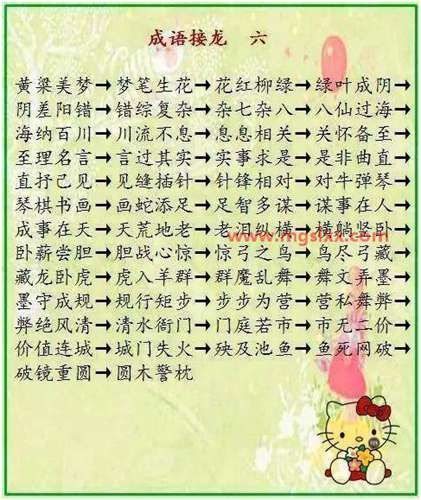 成语接龙 六
黄粱美梦→梦笔生花→花红柳绿→绿叶成阴→
阴差阳错→错综复杂→杂七杂八→八仙过海→
海纳百川→川流不息→息息相关→关怀备至→
至理名言→言过其实→实事求是→是非曲直→
直抒己见→见缝插针→针锋相对→对牛弹琴→
琴棋书画→画蛇添足→足智多谋→谋事在人→
成事在天→天荒地老→老泪纵横→横躺竖卧→
www.mgslxx.com
卧薪尝胆→胆战心惊→惊弓之鸟→鸟尽弓藏→
藏龙卧虎→虎入羊群→群魔乱舞→舞文弄墨→
墨守成规→规行矩步→步步为营→营私舞弊→
弊绝风清→清水衙门→门庭若市→市无二价→
价值连城→城门失火→殃及池鱼→鱼死网破→
破镜重圆→圆木警枕